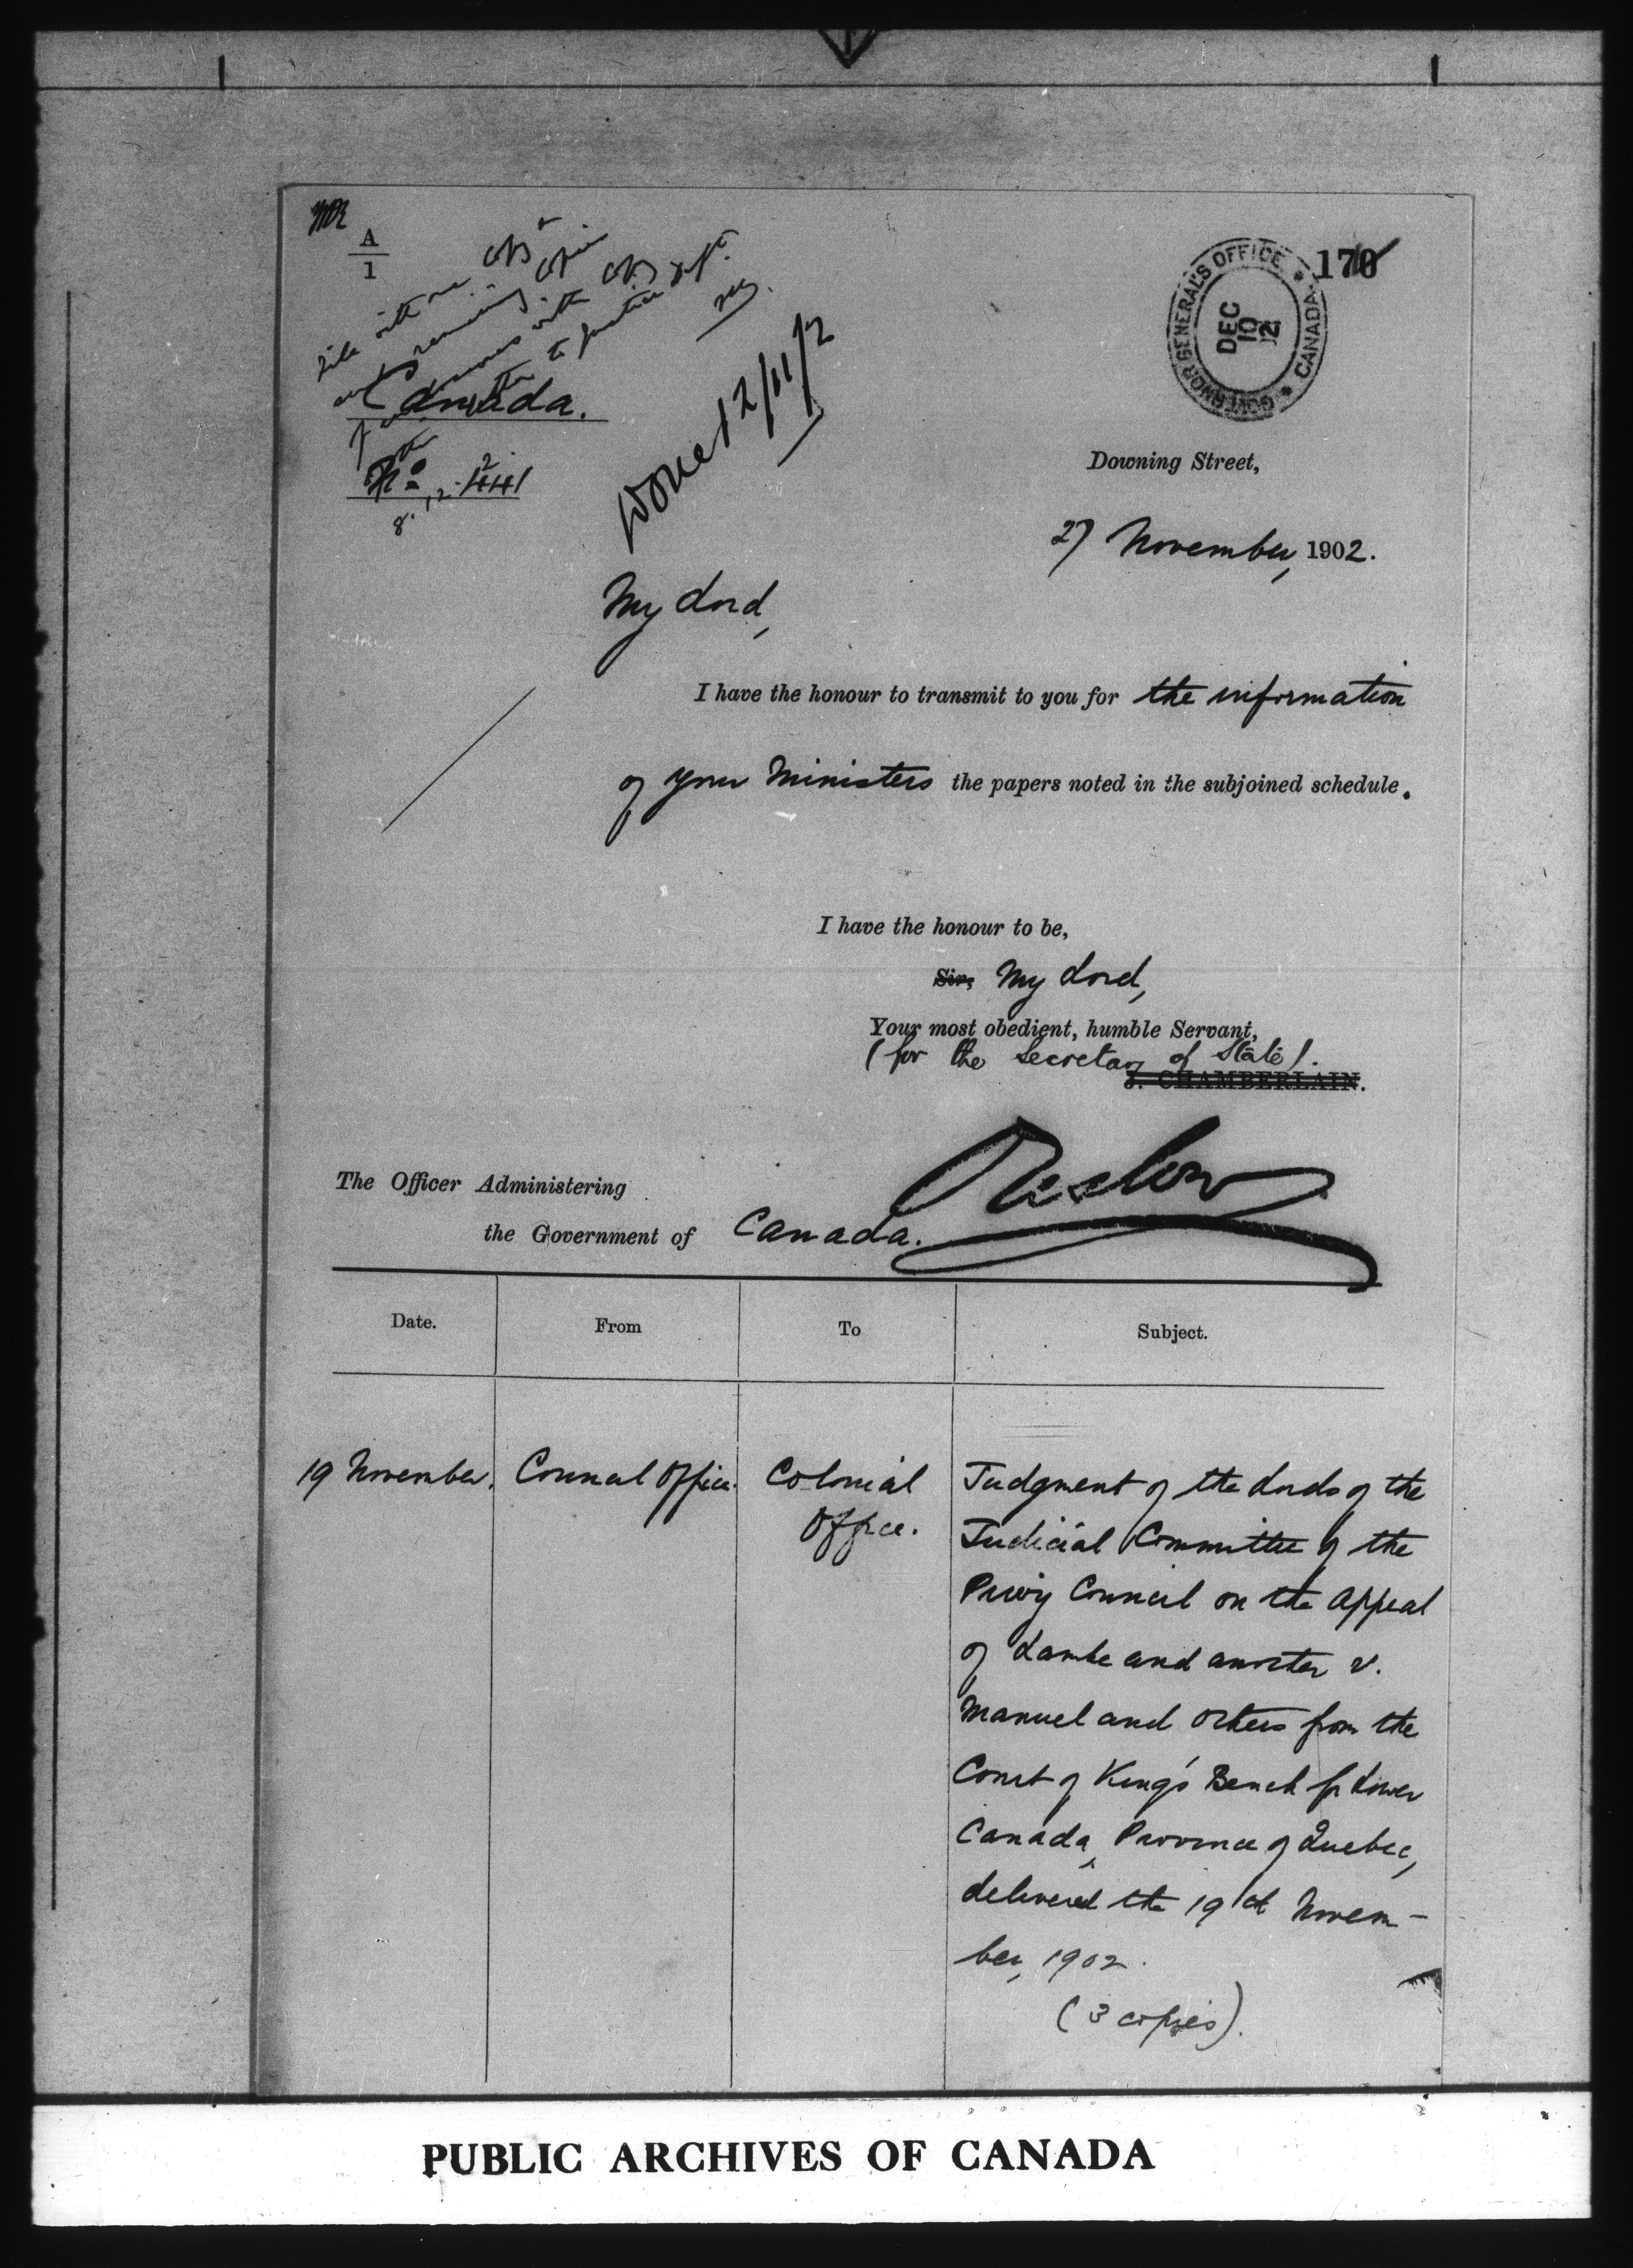 A
1
170
GOVERNOR GENERAL'S OFFICE * CANADA *
DEC
10
Canada.
No. 441
Done 12/11/2
Downing Street,
27 November, 1902.
My Lord,
I have the honour to transmit to you for the information
of your Ministers the papers noted in the subjoined schedule.
I have the honour to be,
Sir, My Lord,
Your most obedient, humble Servant,
(for the Secretary of State).
J. CHAMBERLAIN.
Onslow
The Officer Administering
the Government of Canada.
Date. From To Subject.
19 November. Council Office. Colonial Judgment of the Lords of the
Office. Judicial Committee of the
Privy Council on the Appeal
of Lambe and another v.
Manuel and others from the
Court of King's Bench for Lower
Canada, Province of Quebec,
delivered the 19th Novem-
ber, 1902.
(3 copies).
PUBLIC ARCHIVES OF CANADA